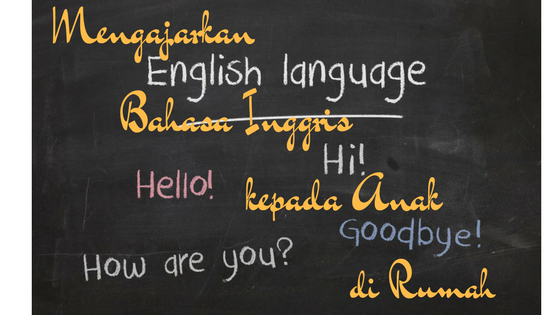 Mengajarkan
English language
Bahasa Inggris
Hi!
Hello!
kepada Anak
Goodbye!
How are you?
di Rumah